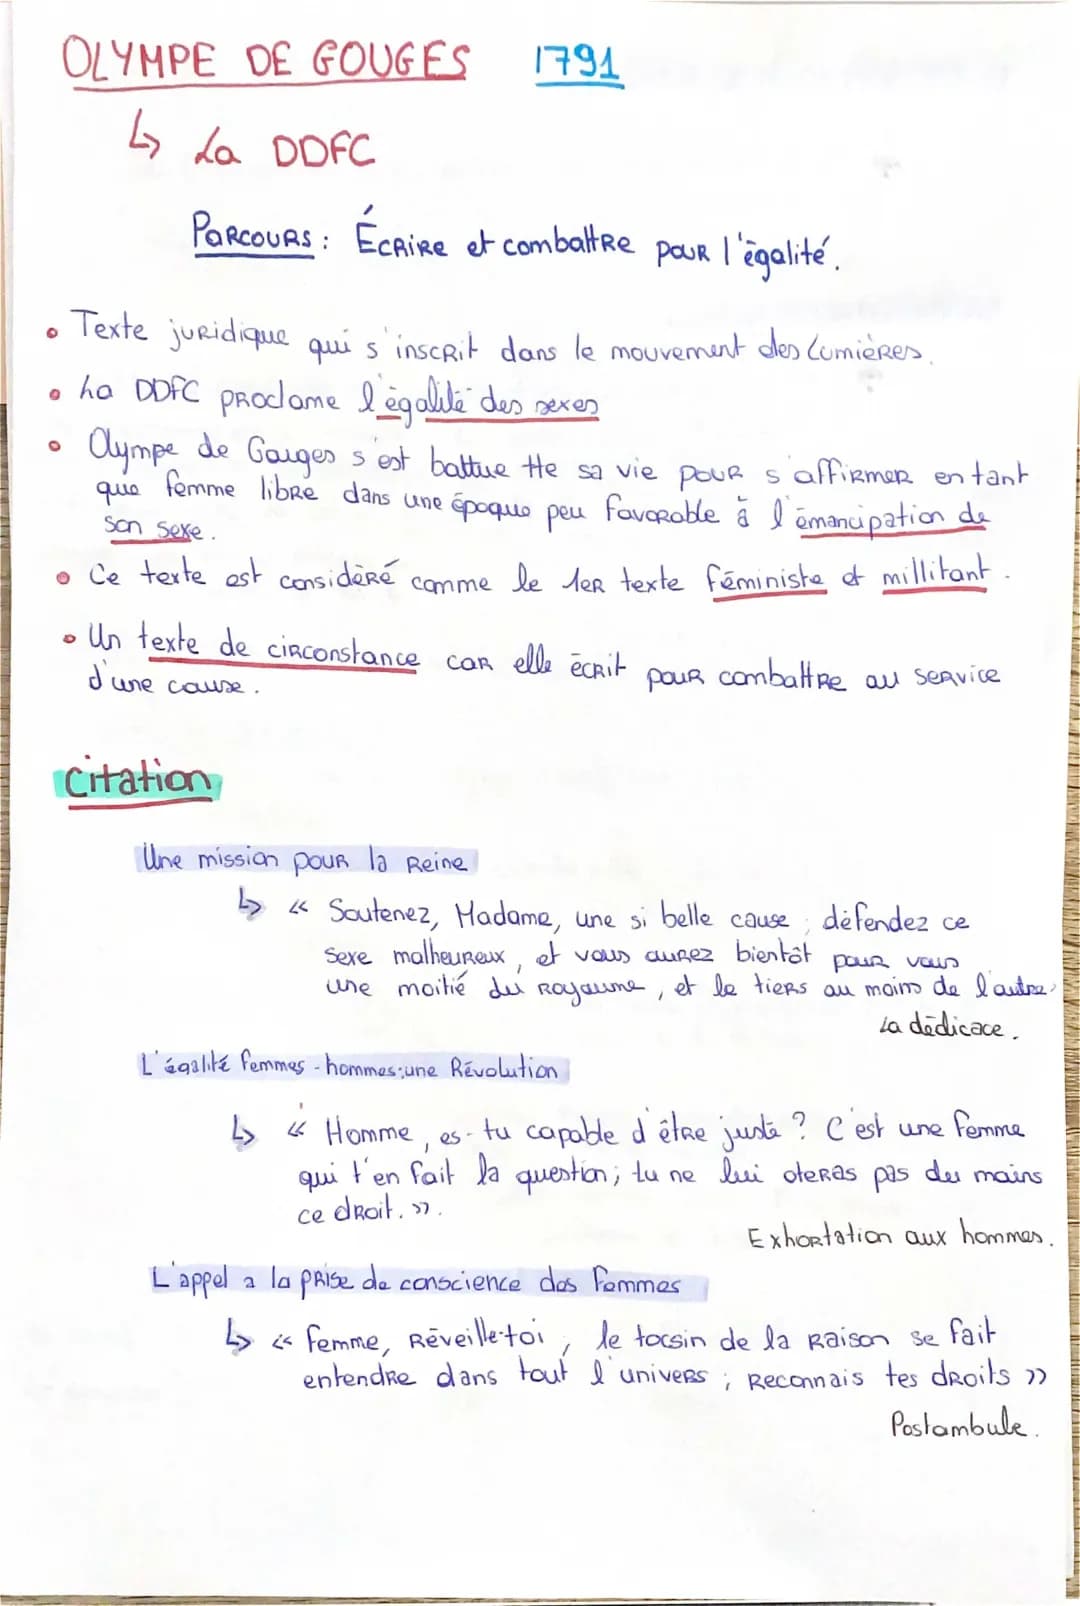 OLYMPE DE GOUGES 1791
↳ La DDFC
PARCOURS : ÉCRIRE et combattre pour l'égalité.
• Texte juridique qui s'inscrit dans le mouvement des Lumières.
• La DDFC proclame l'égalité des sexes
• Olympe de Gouges s'est battue tte sa vie pour s'affirmer en tant
que femme libre dans une époque peu favorable à l'émancipation de
son sexe.
• Ce texte est considéré comme le 1er texte féministe et millitant.
• Un texte de circonstance car elle écrit pour combattre au service
d'une cause.
Citation
Une mission pour la Reine
↳ « Soutenez, Madame, une si belle cause ; défendez ce
sexe malheureux, et vous aurez bientôt pour vous
une moitié du Royaume, et le tiers au moins de l'autre»
La dédicace.
L'égalité femmes-hommes:une Révolution
↳ « Homme, es-tu capable d'être juste ? C'est une femme
qui t'en fait la question; tu ne lui oteras pas du moins
ce droit. ».
Exhortation aux hommes.
L'appel a la prise de conscience des femmes
↳ « femme, Réveille-toi, le tocsin de la raison se fait
entendre dans tout l'univers ; Reconnais tes droits »
Postambule.